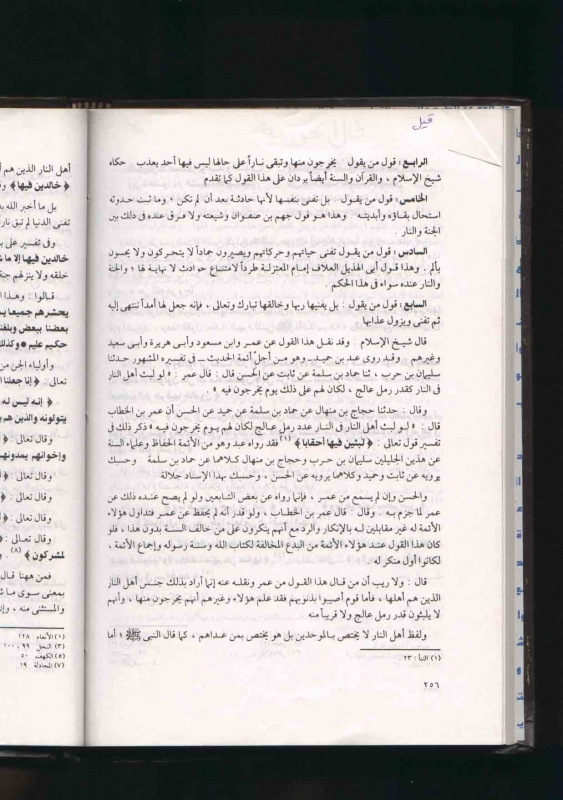 قيل
الرابع : قول من يقول : يخرجون منها وتبقى ناراً على حالها ليس فيها أحد يعذب . حكاه
شيخ الإسلام ، والقرآن والسنة أيضاً يردان على هذا القول كما تقدم
الخامس : قول من يقول : بل تفنى بنفسها لأنها حادثة بعد أن لم تكن ، وما ثبت حدوثه
استحال بقاؤه وأبديته . وهذا هو قول جهم بن صفوان وشيعته ولا فرق عنده في ذلك بين
الجنة والنار .
السادس : قول من يقول تفنى حياتهم وحركاتهم ويصيرون جماداً لا يتحركون ولا يحسون
بألم . وهذا قول أبي الهذيل العلاف إمام المعتزلة طرداً لامتناع حوادث لا نهاية لها ، والجنة
والنار عنده سواء في هذا الحكم .
السابع : قول من يقول : بل يفنيها ربها وخالقها تبارك وتعالى ، فإنه جعل لها أمداً تنتهي إليه
ثم تفنى ويزول عذابها
قال شيخ الإسلام : وقد نقل هذا القول عن عمر وابن مسعود وأبي هريرة وأبي سعيد
وغيرهم . وقد روى عبد بن حميد ــ وهو من أجل أئمة الحديث ــ في تفسيره المشهور حدثنا
سليمان بن حرب ، ثنا حماد بن سلمة عن ثابت عن الحسن قال : قال عمر : « لو لبث أهل النار
في النار كقدر رمل عالج ، لكان لهم على ذلك يوم يخرجون فيه »
وقال : حدثنا حجاج بن منهال عن حماد بن سلمة عن حميد عن الحسن أن عمر بن الخطاب
قال : « لو لبث أهل النار في النار عدد رمل عالج لكان لهم يوم يخرجون فيه » ذكر ذلك في
تفسير قول تعالى : ﴿ لبثين فيها أحقابا ﴾ (١) فقد رواه عبد وهو من الأئمة الحفاظ وعلماء السنة
عن هذين الجليلين سليمان بن حرب وحجاج بن منهال كلاهما عن حماد بن سلمة وحسبك
به وحماد يرويه عن ثابت وحميد وكلاهما يرويه عن الحسن ، وحسبك بهذا الإسناد جلالة
والحسن وإن لم يسمع من عمر ، فإنما رواه عن بعض التابعين ولو لم يصح عنده ذلك عن
عمر لما جزم به . وقال : قال عمر بن الخطاب ، ولو قدر أنه لم يحفظ عن عمر فتداول هؤلاء
الأئمة له غير مقابلين له بالإنكار والرد مع أنهم ينكرون على من خالف السنة بدون هذا ، فلو
كان هذا القول عند هؤلاء الأئمة من البدع المخالفة لكتاب الله وسنة رسوله وإجماع الأئمة ،
لكانوا أول منكر له .
قال : ولا ريب أن من قال هذا القول من عمر ونقله عنه إنما أراد بذلك جنس أهل النار
الذين هم أهلها ، فأما قوم أصيبوا بذنوبهم فقد علم هؤلاء وغيرهم أنهم يخرجون منها ، وأنهم
لا يلبثون قدر رمل عالج ولا قريباً منه
ولفظ أهل النار لا يختص بالموحدين بل هو يختص بمن عداهم ، كما قال النبي ﷺ : أما
(١) النبأ : ٢٣
٢٥٦
أهل النار الذين هم
﴿ خالدين فيها ﴾
بل ما أخبر الله
تفنى الدنيا لم تبق
وفي تفسير علي
خالدين فيها إلا ما
خلقه ولا ينزلهم
قالوا : وهذا
يحشرهم جميعا
بعضنا ببعض وبلغنا
حكيم عليم
وأولياء الجن من
تعالى : ﴿ إنا جعلنا
﴿ إنه ليس له
يتولونه والذين هم
وقال تعالى :
وإخوانهم يمدونهم
وقال تعالى :
وقال تعالى :
وقال تعالى :
وقال تعالى :
لمشركون ﴾ (٨)
فمن ههنا قال
بمعنى سوى
والمستثنى منه ،
(١) الأنعام : ١٢٨
(٣) النحل : ٩٩ ، ١٠٠
(٥) الكهف : ٥٠
(٧) المجادلة : ١٩